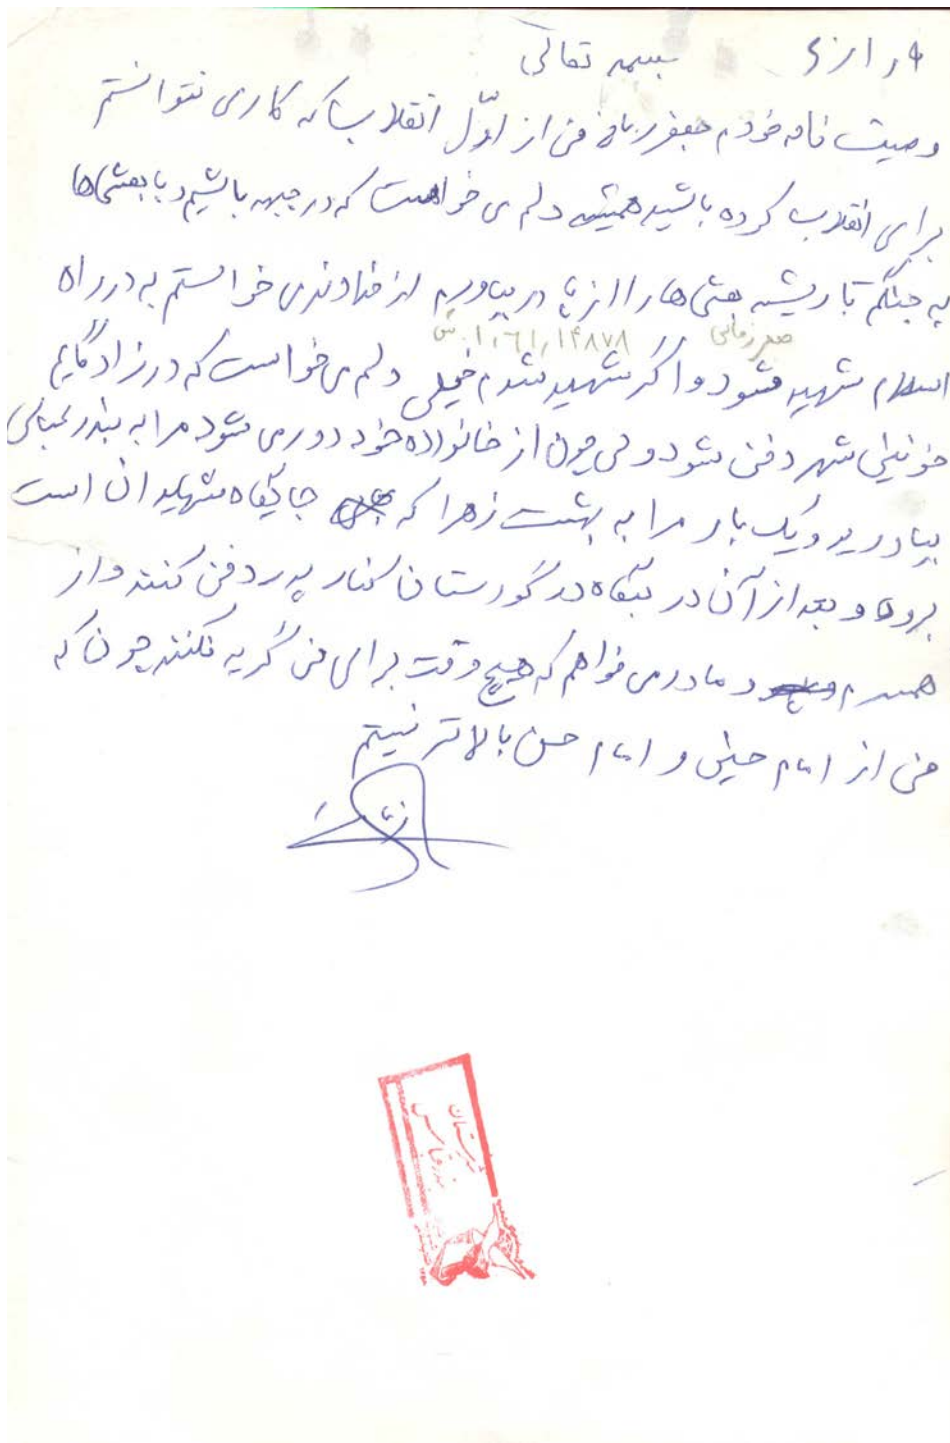 بسمه تعالی
وصیت نامه خودم جعفر من از اوّل انقلاب که کاری نتوانستم
برای انقلاب کرده باشید همیشه دلم می خواهست که در جبهه باشیم و با بعثی ها
به جنگم تا ریشه بعثی ها را از پا در بیاورم از خداوندی خواستم به در راه
صفر زمانی ۱۴۸۷۸
اسلام شهید مشود و اگر شهید شدم خیلی دلم می خواست که در زادگایم
خونین شهر دفن شود ولی چون از خانواده خود دور می شود مرا به بندر عباس
بیاورید و یک بار مرا به بهشت زهرا که جایگاه شهیدان است
برود و بعد از آن در گورستان کنار پدر دفن کنند و از
همسرم و مادر می خواهم که هیچ وقت برای من گریه نکنند چون که
من از امام حسین و امام حسن بالاتر نیستم
شهرستان